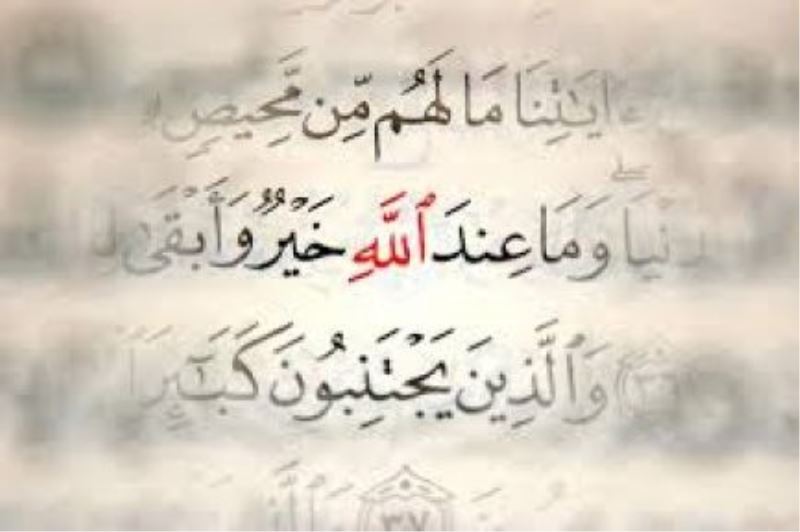 ءَايَٰتِنَا مَا لَهُم مِّن مَّحِيصٍ
وَمَا عِندَ ٱللَّهِ خَيْرٌ وَأَبْقَىٰ
وَٱلَّذِينَ يَجْتَنِبُونَ كَبَٰٓئِرَ
٣٧